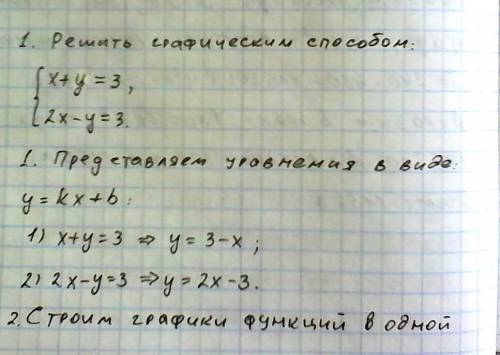 1. Решить графическим способом:
{ x+y=3,
2x-y=3.
1. Представляем уравнения в виде:
y=kx+b:
1) x+y=3 ⇒ y=3-x;
2) 2x-y=3 ⇒ y=2x-3.
2. Строим графики функций в одной